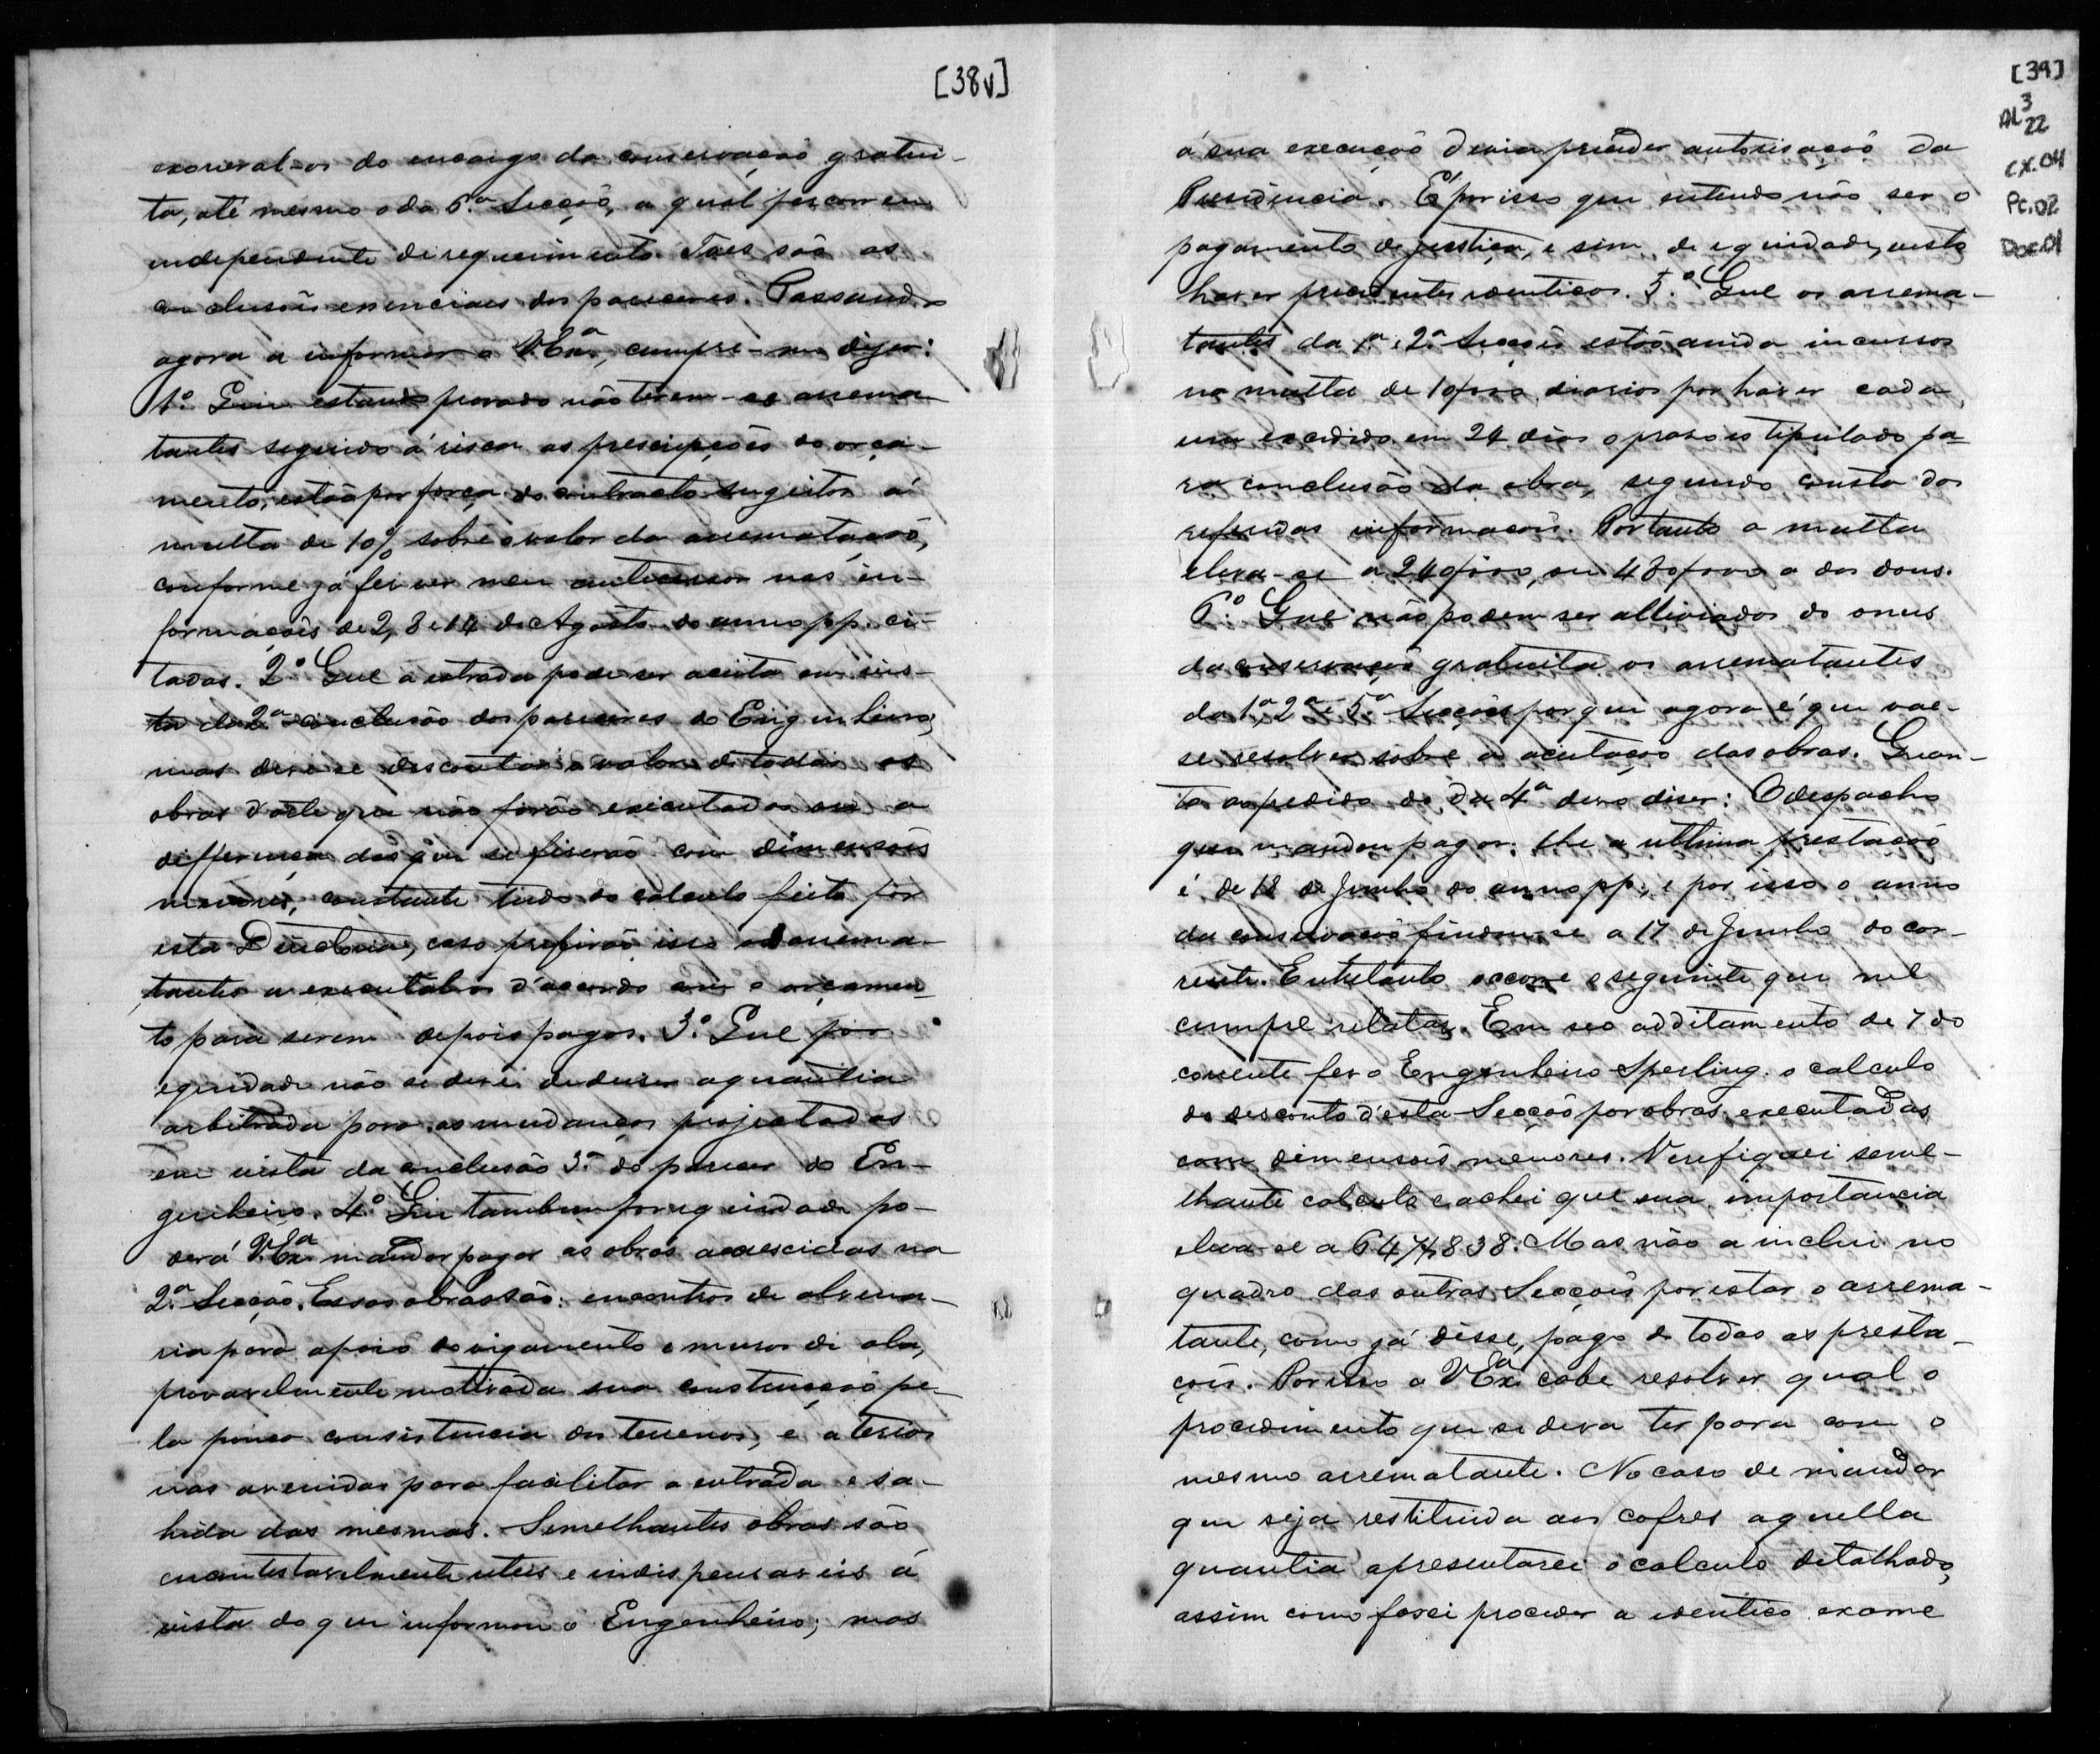 [38v]
exoneral-os do encargo da conservação gratui-
ta, até mesmo o da 6.ª Secção, a qual
independente de requerimento. Taes são as
conclusões essenciaes dos pareceres. Passando
agora a informar a V. Exª, cumpre-me dizer:
1.º Que estando provado não terem-se os arrema-
tantes seguido á risca as prescripções do orça-
mento, estão por força do contracto sugeitos á
multa de 10% sobre o valor da arrematação,
conforme já fes ver meu antecessor nas in-
formações de 2, 8 e 14 de Agosto do anno pp. ci-
tadas. 2.º Que a estrada pode ser aceita em vis-
ta da 2ª conclusão dos pareceres do Engenheiro,
mas deve-se descontar o valor de todas as
obras d'arte que não forão executadas ou a
differença das que se fiserão com dimensões
menores, constante tudo do calculo feito por
esta Directoria, caso prefirão isso os arrema-
tantes a executal-os d'acordo com o orçamen-
to para serem depois pagos. 3.º Que por
equidade não se deve dedusir a quantia
arbitrada para as mudanças projectadas
em vista da conclusão 3.ª do parecer do En-
genheiro. 4.º Que tambem por equidade po-
derá V. Exª mandar pagar as obras accrescidas na
2.ª Secção. Essas obras são: encontros de alvena-
ria para apoio do vigamento e muros de ala,
provavelmente motivada sua construcção pe-
la pouca consistencia dos terrenos, e aterros
nas avenidas para facilitar a entrada e sa-
hida das mesmas. Semelhantes obras são
incontestavelmente uteis e indispensaveis á
vista do que informou o Engenheiro; mas
[39]
AL 3
22
CX.04
Pc.02
Doc.01
á sua execução devia preceder autorisação da
Presidencia. É por isso que entendo não ser o
pagamento de justiça, e sim de equidade, visto
haver precedentes identicos. 5.º Que os arrema-
tantes da 1ª e 2.ª Secções estão ainda incursos
na multa de 10$000 diarios por haver cada
um excedido em 24 dias o praso estipulado pa-
ra conclusão da obra, segundo consta das
referidas informações. Portanto a multa
eleva-se a 240$000, ou 480$000 a dos dous.
6.º Que não podem ser alliviados do onus
da conservação gratuita os arrematantes
da 1ª, 2ª e 5.ª Secções por que agora é que vae-
se resolver sobre a aceitação das obras. Quan-
to ao pedido do da 4ª devo diser: O despacho
que mandou pagar-lhe a ultima prestação
é de 18 de Junho do anno pp., e por isso o anno
da conservação findou-se a 17 de Junho do cor-
rente. Entretanto occorre o seguinte que me
cumpre relatar. Em seo additamento de 7 do
corrente fes o Engenheiro Sperling o calculo
do desconto d'esta Secção por obras executadas
com dimensões menores. Verefiquei seme-
lhante calculo e achei que sua importancia
eleva-se a 647$838. Mas não a inclui no
quadro das outras Secções por estar o arrema-
tante, como já disse, pago de todas as presta-
ções. Por isso a V. Exª cabe resolver qual o
procedimento que se deva ter para com o
mesmo arrematante. No caso de mandar
que seja restituida aos cofres aquella
quantia apresentarei o calculo detalhado,
assim como farei proceder a identico exame